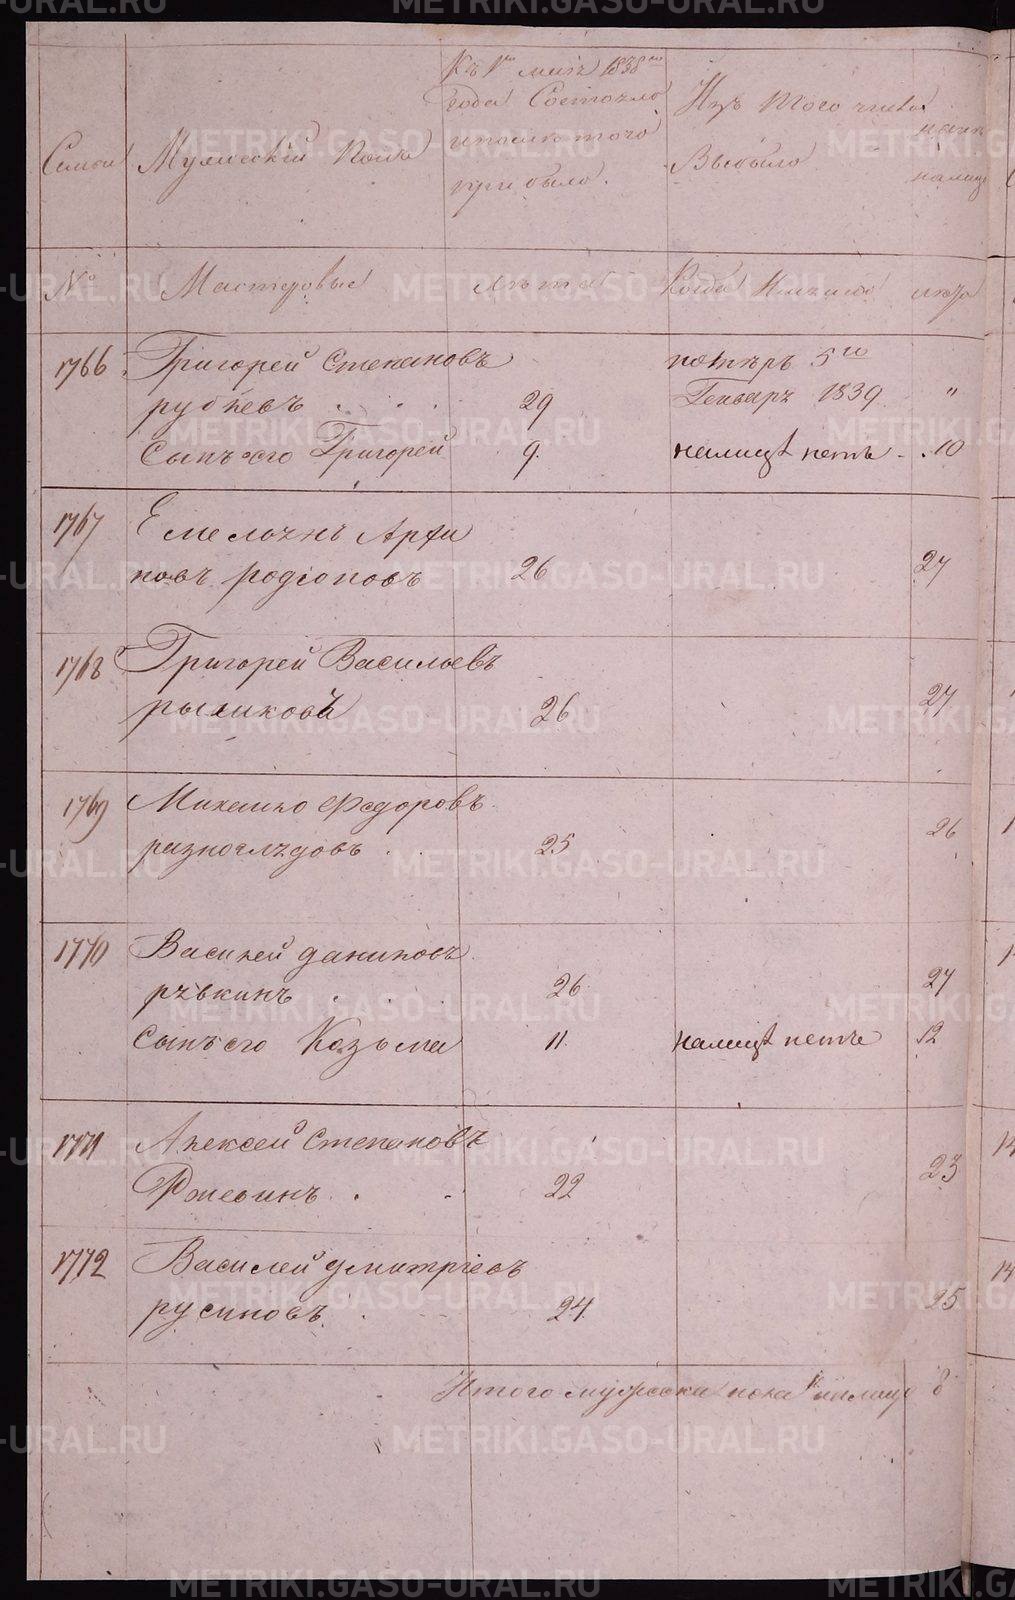 Къ 1му маія 1838го
года Состояло
и после того
прибыло.
Изъ того числа
Выбыло
Семьи
Мужескій Полъ
налицо
№
Мастеровые
лѣта
Когда Имянно
лѣта
1766
Григорей Степановъ
рубцевъ
29
померъ 5го
Генваря 1839
"
Сынъ его Григорей
9.
налицѣ нетъ
10
1767
Емельянъ Архи
повъ родіоновъ
26
27
1768
Григорей Васильевъ
рыликовъ
26
27
1769
Михайло Федоровъ
разноглядовъ
25
26
1770
Василей даниловъ
рѣвкинъ
26
27
Сынъ его Козьма
11.
налицѣ нетъ
12
1771
Алексей Степановъ
Ржевинъ
22
23
1772
Василей дмитріевъ
русиновъ
24
25
Итого мужеска пола налицо 8
METRIKI.GASO-URAL.RU